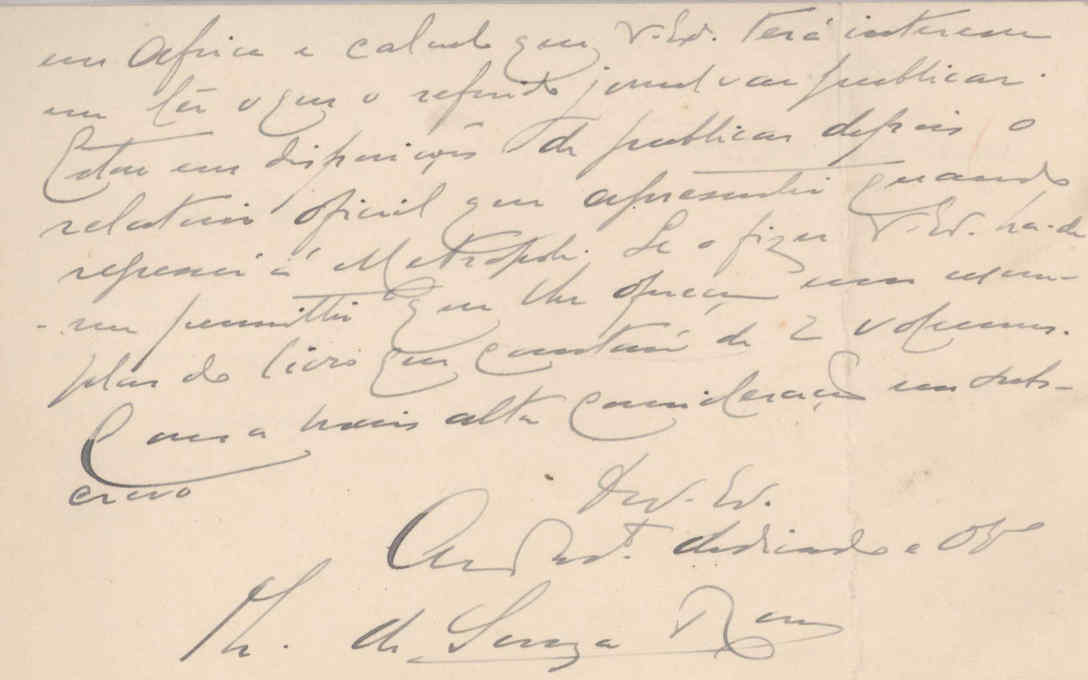 em Africa e calculo que V. Ex. terá interesse
em lêr o que o referido jornal vae publicar.
Estou em disposição de publicar depois o
relatorio oficial que apresentei quando
regressei á Metropole. Se o fizer V. Ex. ha-de
-me permittir que lhe ofereça um exem-
plar do livro que constará de 2 volumes.
Com a mais alta consideração me subs-
crevo
De V. Ex.
dedicado e
M. de Souza